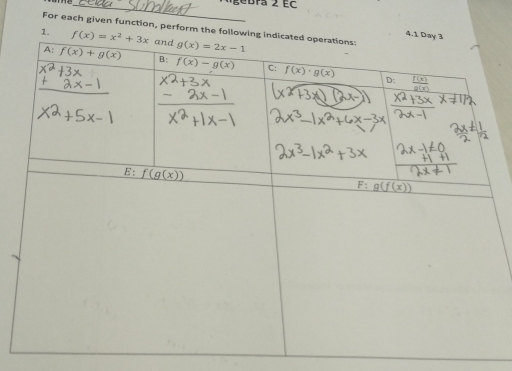 Algebra 2 EC
For each given function, perform the following indicated operations:
4.1 Day 3
1. f(x) = x² + 3x and g(x) = 2x − 1
A: f(x) + g(x)
x²+3x
+ 2x−1
x²+5x−1
B: f(x) − g(x)
x²+3x
− 2x−1
x²+1x−1
C: f(x) · g(x)
(x²+3x)(2x−1)
2x³−1x²+6x−3x
2x³−1x²+3x
D: f(x)/g(x)
x²+3x x≠1/2
2x−1
2x≠1/2
2
2x−1≠0
+1 +1
2x≠1
E: f(g(x))
F: g(f(x))